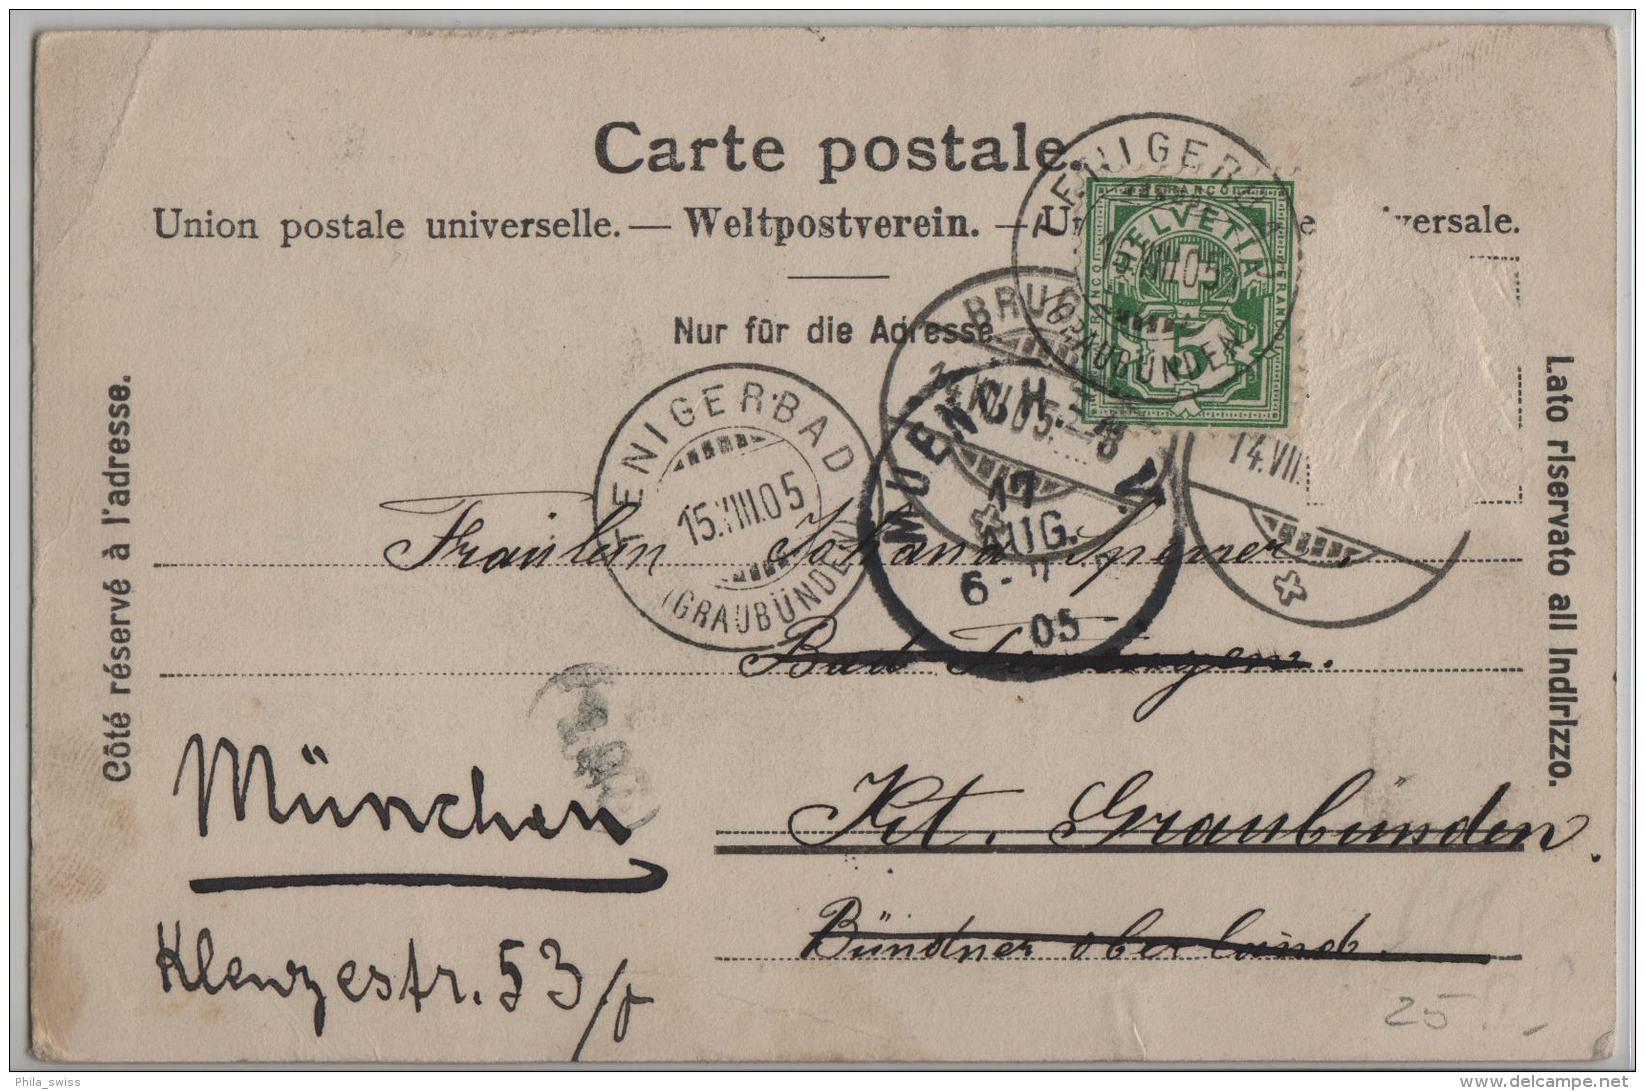 Carte postale.
Union postale universelle. — Weltpostverein. — versale.
Nur für die Adresse
Côté réservé à l'adresse.
Lato riservato all indirizzo.
FRANCO
FRANCO
HELVETIA
5
(GRAUBÜNDEN)
BRUG
14.VIII.05.
14.VIII.
TENIGERBAD
15.VIII.05
(GRAUBÜNDEN)
MUENCH
17
AUG.
6-7
05
Fräulein Johanna
Bad
Kt. Graubünden.
Bündner oberland.
München
Klenzestr. 53/
25.-
Phila_swiss
delcampe.net